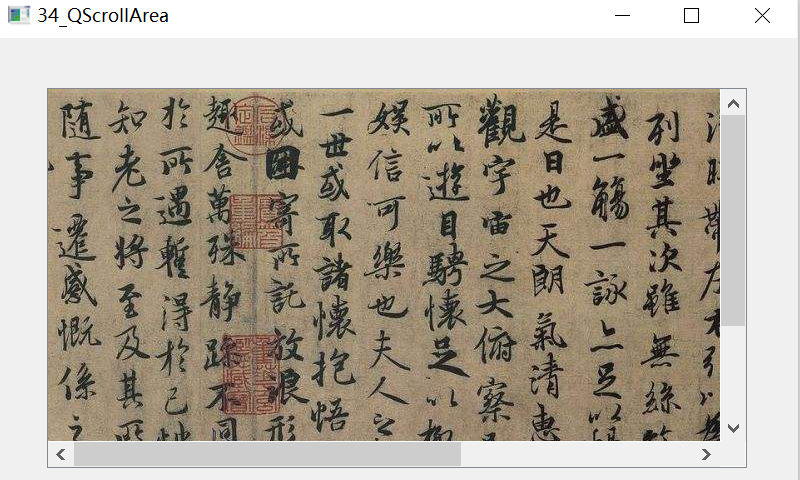 34_QScrollArea
帶左右引以
列坐其次雖無絲
盛一觴一詠亦足以暢
是日也天朗氣清惠
觀宇宙之大俯察
所以遊目騁懷足以極
娛信可樂也夫人之
一世或取諸懷抱悟
或因寄所託放浪形
趣舍萬殊靜躁不同
於所遇暫得於己快
知老之將至及其所
隨事遷感慨係之